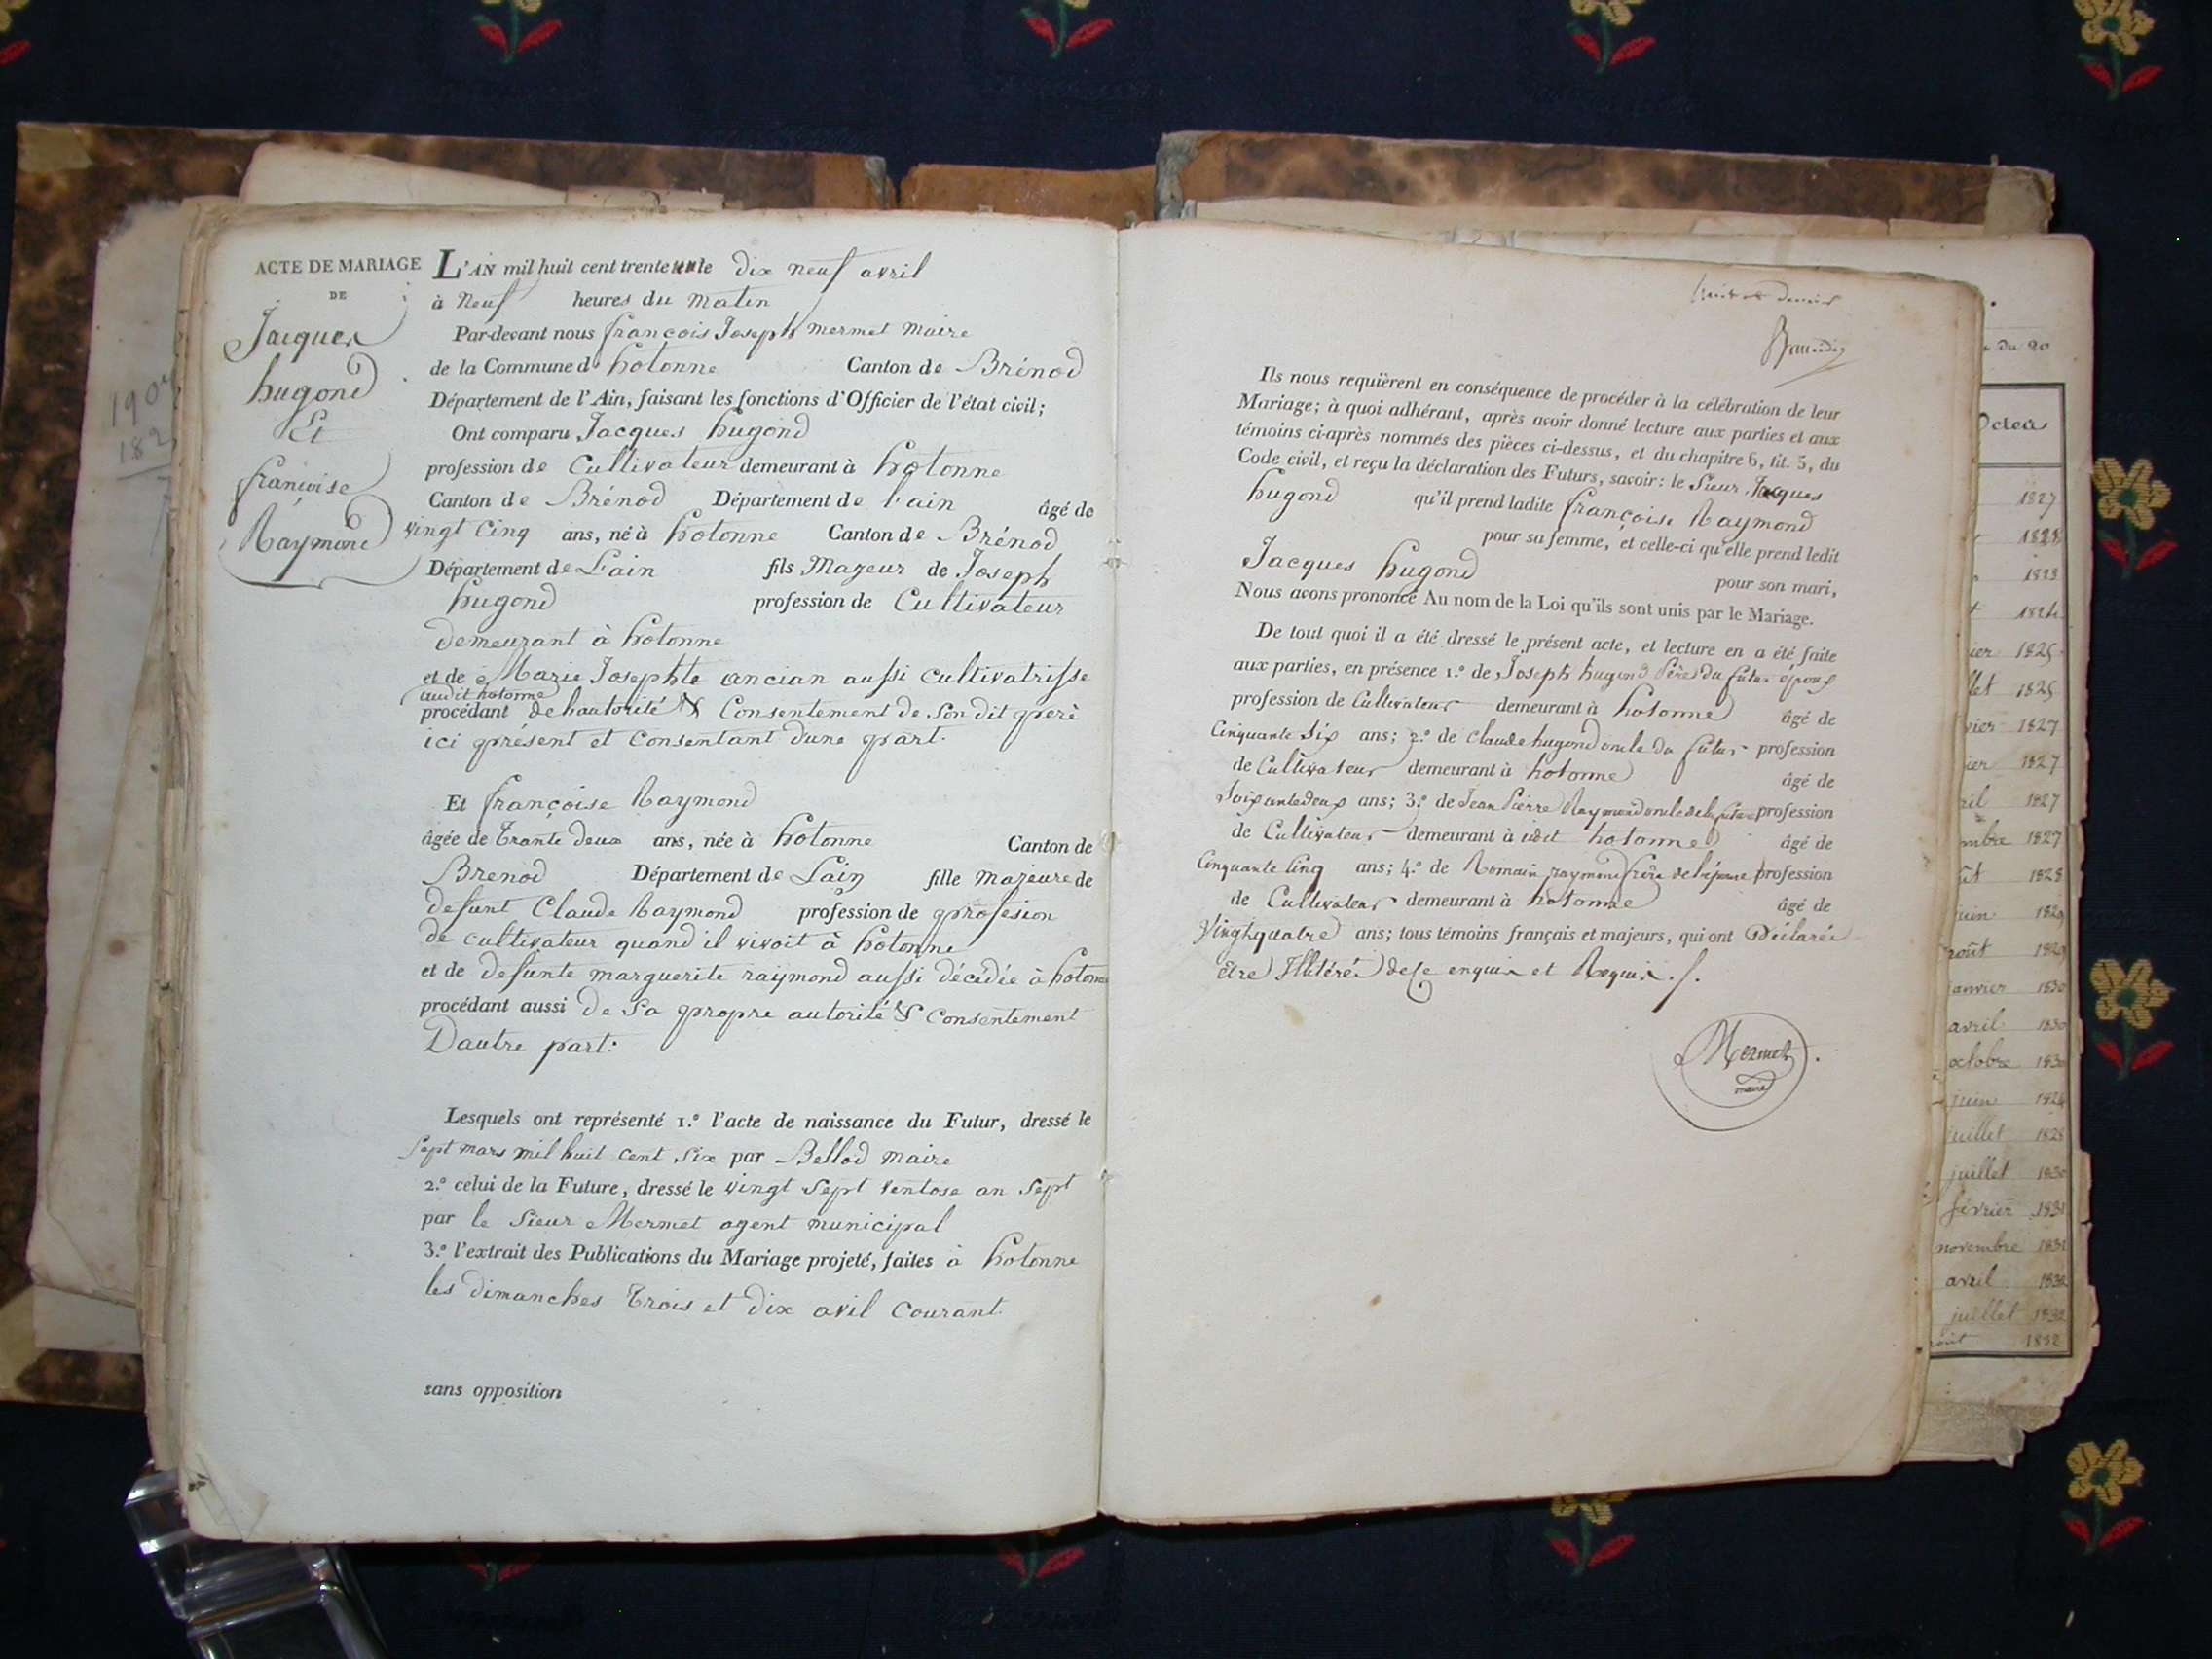 190
182
ACTE DE MARIAGE
DE
Jacques
hugond
Et
françoise
Raymond
L'AN mil huit cent trente un le dix neuf avril
à Neuf heures du matin
Par-devant nous françois Joseph mermet Maire
de la Commune d' hotonne Canton de Brénod
Département de l'Ain, faisant les fonctions d'Officier de l'état civil;
Ont comparu Jacques hugond
profession de Cultivateur demeurant à hotonne
Canton de Brénod Département de l'ain âgé de
vingt Cinq ans, né à hotonne Canton de Brénod
Département de L'ain fils Majeur de Joseph
hugond profession de Cultivateur
demeurant à hotonne
et de Marie Josephte ancian aussi Cultivatrisse
audit hotonne
procédant de hautorité & Consentement de Son dit perè
ici présent et Consentant dune part.
Et françoise Raymond
âgée de trante deux ans, née à hotonne Canton de
Brenod Département de Lain fille majeure de
defunt Claude Raymond profession de profesion
de cultivateur quand il vivoit à hotonne
et de defunte marguerite raijmond aussi décédée à hotonne
procédant aussi de Sa propre autorité & Consentement
Dautre part:
Lesquels ont représenté 1.º l'acte de naissance du Futur, dressé le
Sept mars mil huit cent Six par Bellod maire
2.º celui de la Future, dressé le vingt Sept Ventose an Sept
par le Sieur Mermet agent municipal
3.º l'extrait des Publications du Mariage projeté, faites à hotonne
les dimanches trois et dix avil Courant.
sans opposition
Ils nous requièrent en conséquence de procéder à la célébration de leur
Mariage; à quoi adhérant, après avoir donné lecture aux parties et aux
témoins ci-après nommés des pièces ci-dessus, et du chapitre 6, tit. 5, du
Code civil, et reçu la déclaration des Futurs, savoir: le Sieur Jacques
hugond qu'il prend ladite françoise Raymond
pour sa femme, et celle-ci qu'elle prend ledit
Jacques hugond pour son mari,
Nous avons prononcé Au nom de la Loi qu'ils sont unis par le Mariage.
De tout quoi il a été dressé le présent acte, et lecture en a été faite
aux parties, en présence 1.º de Joseph hugond Père du futur époux
profession de Cultivateur demeurant à hotonne âgé de
Cinquante Six ans; 2.º de Claude hugond oncle du futur profession
de Cultivateur demeurant à hotonne âgé de
Soixantedeux ans; 3.º de Jean Pierre Raymond oncle de la future profession
de Cultivateur demeurant à hotonne âgé de
Cinquante Cinq ans; 4.º de Romain raymond frère de l'épouse profession
de Cultivateur demeurant à hotonne âgé de
Vingtquatre ans; tous témoins français et majeurs, qui ont Déclarés
etre Illitérés de Ce enquis et Requis.
Mermet
maire
du 20
1827
1828
1823
1824
ier 1825
llet 1825
vier 1827
ier 1827
ril 1827
mbre 1827
ût 1828
juin 1829
août 1829
janvier 1830
avril 1830
octobre 1830
juin 1824
juillet 1828
juillet 1830
février 1831
novembre 1831
avril 1832
juillet 1832
août 1832